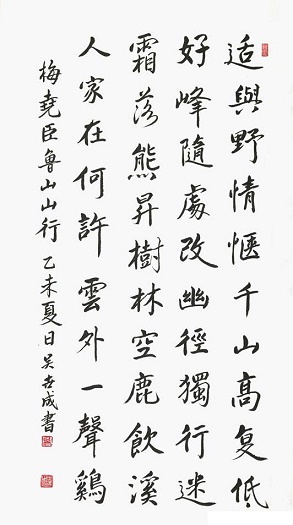 适與野情惬千山高复低
好峰隨處改幽徑獨行迷
霜落熊昇樹林空鹿飲溪
人家在何許雲外一聲鷄
梅堯臣魯山山行 乙未夏日吴成書